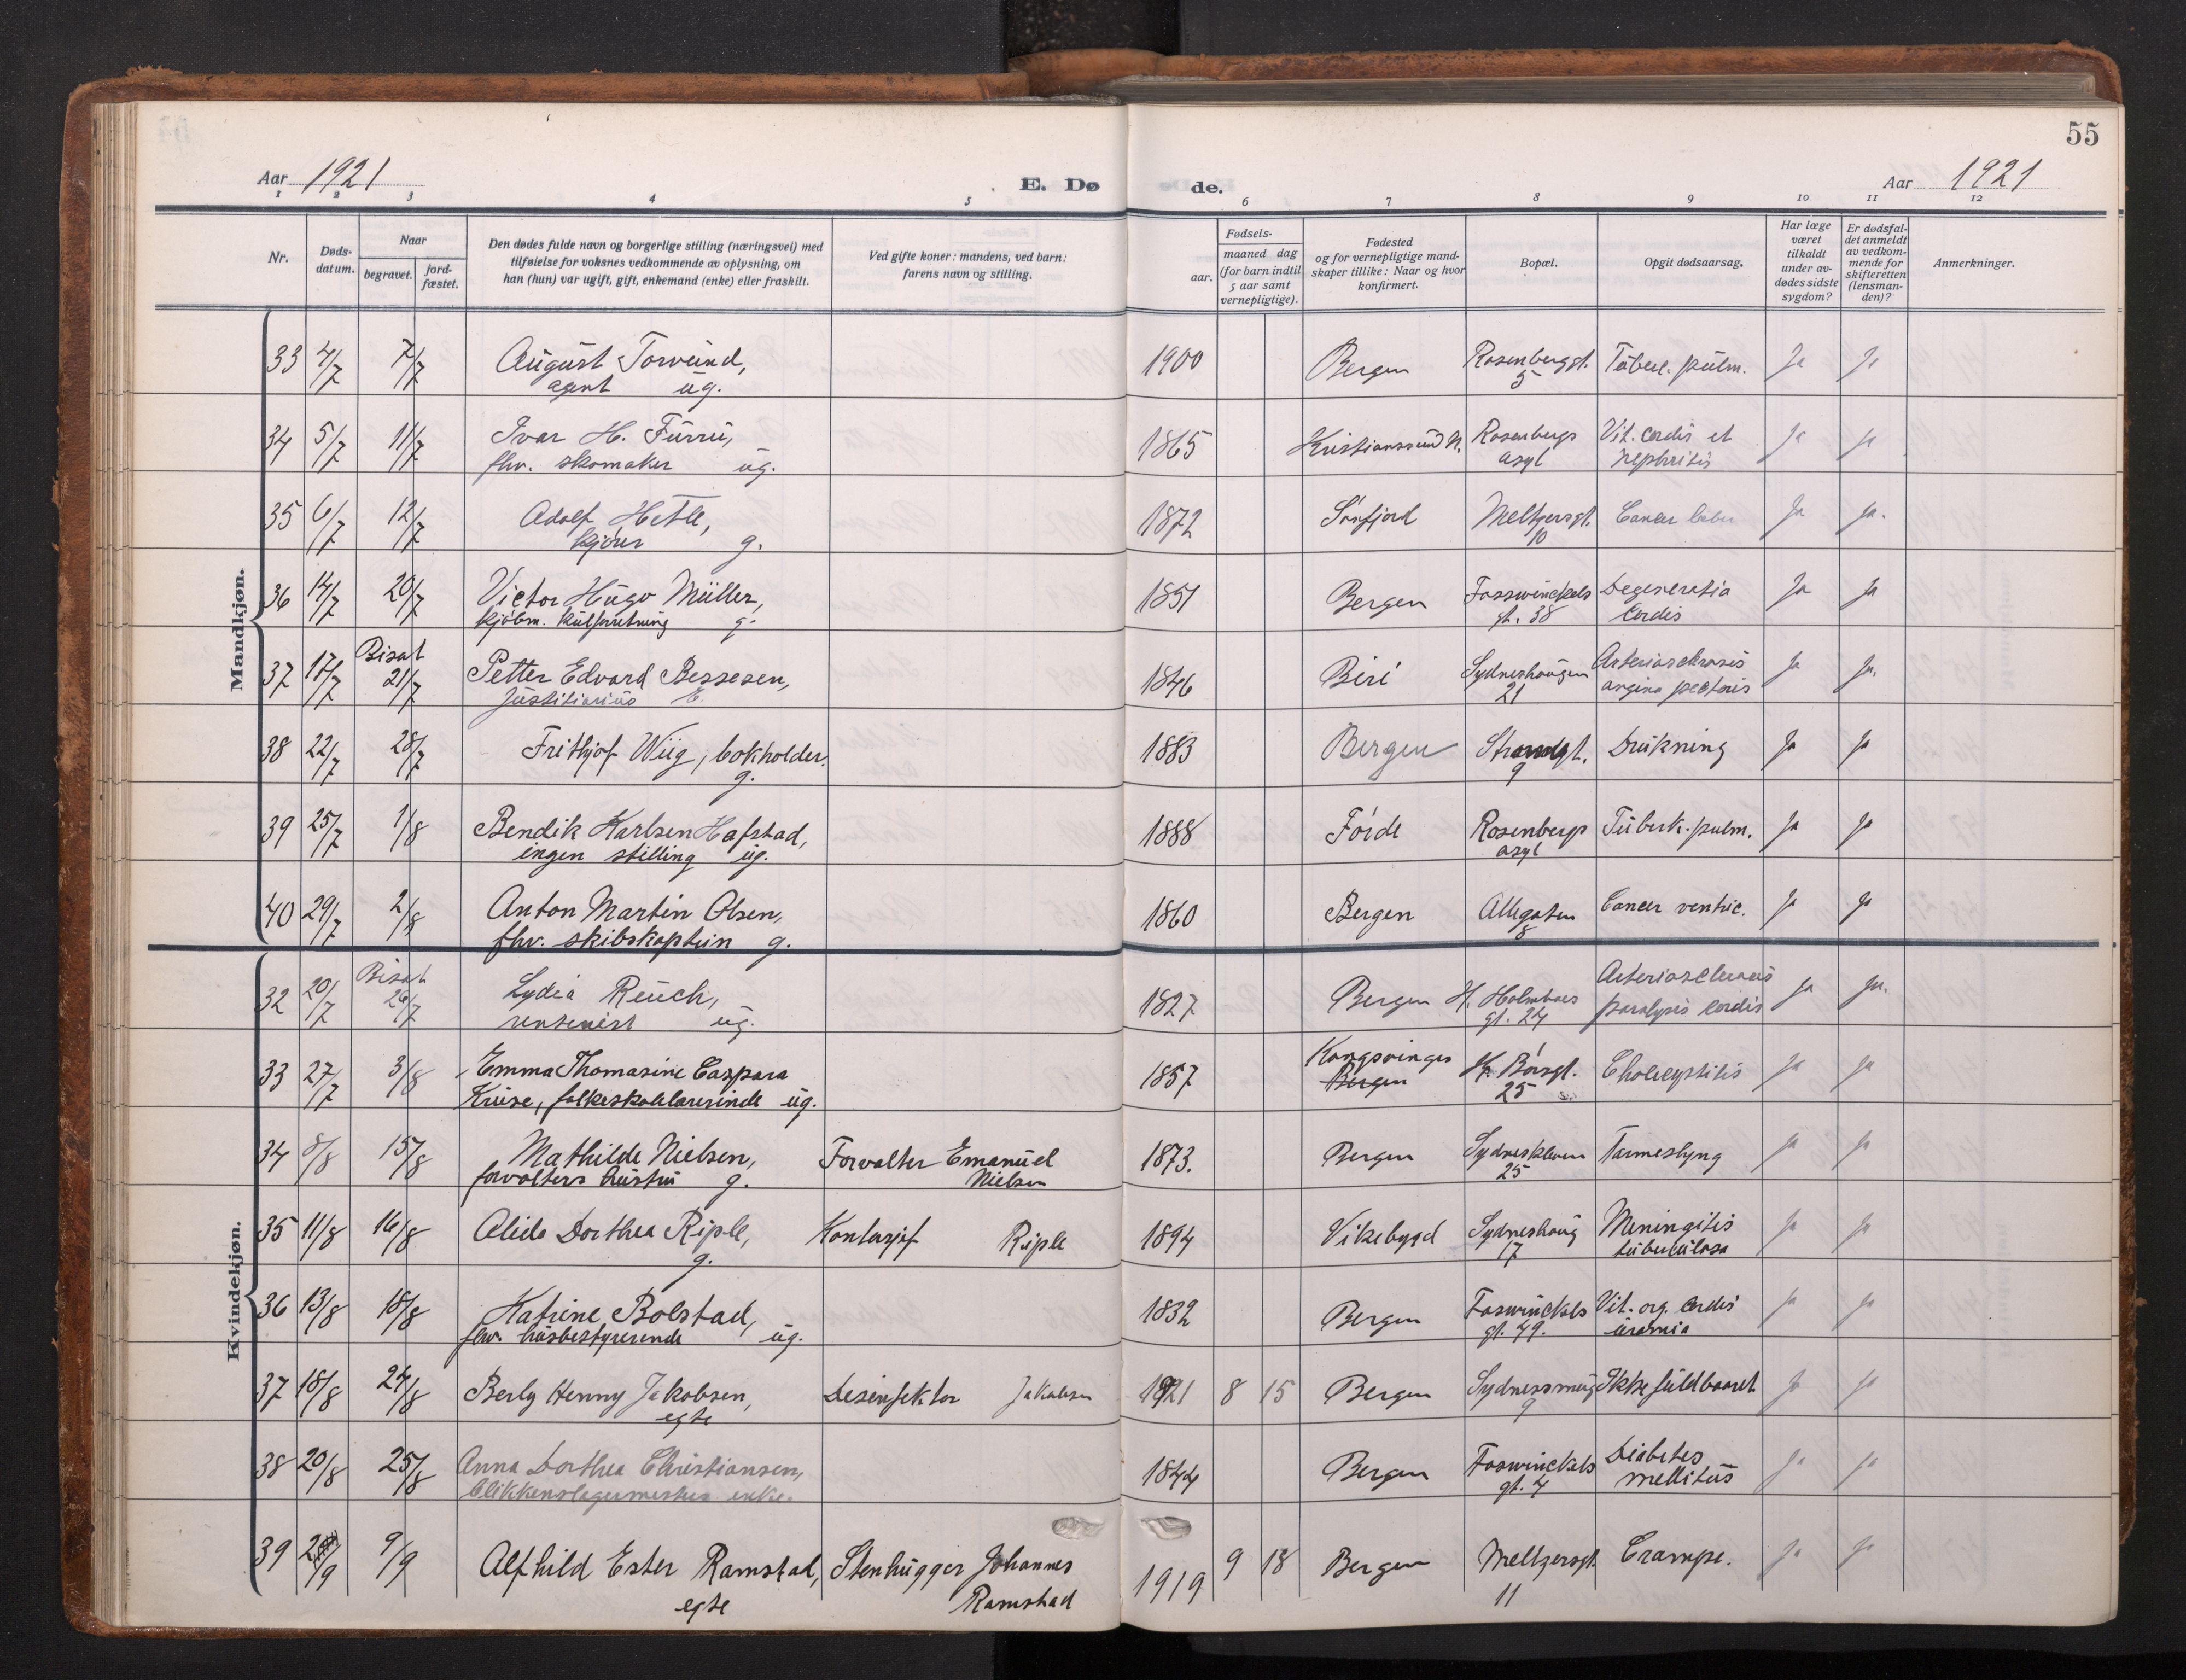 55
Aar 1921
E. Dø
de.
Aar 1921
1 2 3 4 5 6 7 8 9 10 11 12
Nr.
Døds-
datum.
Naar
begravet.
jord-
fæstet.
Den dødes fulde navn og borgerlige stilling (næringsvei) med
tilføielse for voksnes vedkommende av oplysning, om
han (hun) var ugift, gift, enkemand (enke) eller fraskilt.
Ved gifte koner: mandens, ved barn:
farens navn og stilling.
Fødsels-
aar.
maaned dag
(for barn indtil
5 aar samt
vernepligtige).
Fødested
og for vernepligtige mand-
skaper tillike: Naar og hvor
konfirmert.
Bopæl.
Opgit dødsaarsag.
Har læge
været
tilkaldt
under av-
dødes sidste
sygdom?
Er dødsfal-
det anmeldt
av vedkom-
mende for
skifteretten
(lensman-
den)?
Anmerkninger.
Mandkjøn.
33 4/7 7/7 August Torvund, 1900 Bergen Rosenbergsgt. Tuberc. pulm. Ja Ja
agent ug. 5
34 5/7 11/7 Ivar H. Furru, 1865 Kristianssund N. Rosenbergs Vit. cordis et Ja Ja
fhv. skomaker ug. asyl nephritis
35 6/7 12/7 Adolf Hetle, 1872 Sønfjord Meltzersgt. Cancer Ja Ja.
kjører g. 10
36 14/7 20/7 Victor Hugo Müller, 1851 Bergen Fosswinckels Degeneratio Ja Ja
kjøbm. kulforretning g. gt. 38 cordis
37 17/7 Bisat Petter Edvard Bessesen, 1846 Biri Sydneshaugen Arteriosclerosis Ja Ja.
21/7 Justitiarius E. 21 angina pectoris
38 22/7 28/7 Frithjof Wiig, bokholder. 1883 Bergen Strandgt. Drukning Ja Ja
g. 9
39 25/7 1/8 Bendik Karlsen Hafstad, 1888 Førde Rosenbergs Tuberk. pulm. Ja Ja
ingen stilling ug. asyl
40 29/7 2/8 Anton Martin Olsen, 1860 Bergen Allegaten Cancer ventric. Ja Ja
fhv. skibskaptein g. 8
Kvindekjøn.
32 20/7 Bisat Lydia Reuch, 1827 Bergen H. Holmboes Arteriosclerosis Ja Ja.
26/7 rentenist ug. gt. 24 paralysis cordis
33 27/7 3/8 Emma Thomasine Caspara 1857 Kongsvinger Kr. Børsgt. Cholecystitis Ja Ja
Kruse, folkeskolelærerinde ug. Bergen 25
34 8/8 15/8 Mathilde Nielsen, Forvalter Emanuel 1873. Bergen Sydneskleven Tarmeslyng Ja Ja
forvalters hustru g. Nielsen 25
35 11/8 16/8 Alida Dorthea Riple, Kontorsjef Riple 1894 Vikebygd Sydneshaug Meningitis Ja Ja
g. 17 tuberculosa
36 13/8 18/8 Katrine Bolstad, 1832 Bergen Foswinckels Vit. org. cordis Ja Ja
fhv. husbestyrerinde ug. gt. 49. uremia
37 18/8 24/8 Berly Henny Jakobsen, Desinfektor Jakobsen 1921 8 15 Bergen Sydnessmug Ikke fuldbaaret Ja Ja
egte 9
38 20/8 25/8 Anna Dorthea Christiansen, 1844 Bergen Foswinckels Diabetes Ja Ja
blikkenslagermesters enke. gt. 4 mellitus
39 2/9 9/9 Alfhild Ester Ramstad, Stenhugger Johannes 1919 9 18 Bergen Meltzersgt. Crampe. Ja Ja
egte Ramstad 11